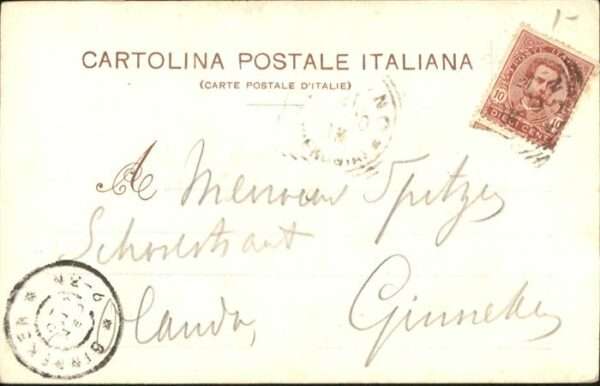 CARTOLINA POSTALE ITALIANA
(CARTE POSTALE D'ITALIE)
POSTE ITAL
10 10
DIECI CENT
A Mevrouw Spitzer
Schoolstraat
Olanda, Ginneken
GINNEKEN